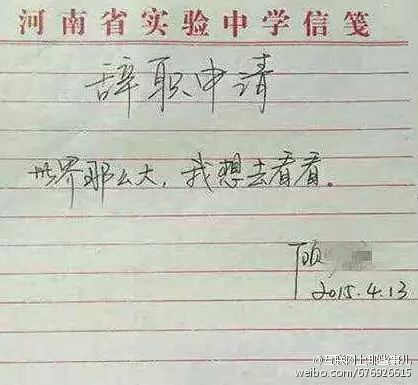 河南省实验中学信笺
辞职申请
世界那么大，我想去看看。
顾
2015.4.13
@互联网上那些事儿
weibo.com/676926615